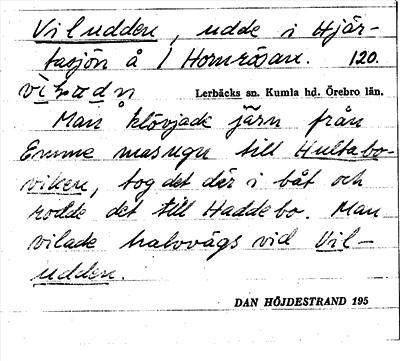 Viludden, udde i Hjär-
tasjön å 1 Hornrösan. 120.
Lerbäcks sn. Kumla hd. Örebro län.
Man klövjade järn från
Emme masugn till Hultabo-
viken, tog det där i båt och
rodde det till Haddebo. Man
vilade halvvägs vid Vil-
udden.
DAN HÖJDESTRAND 195